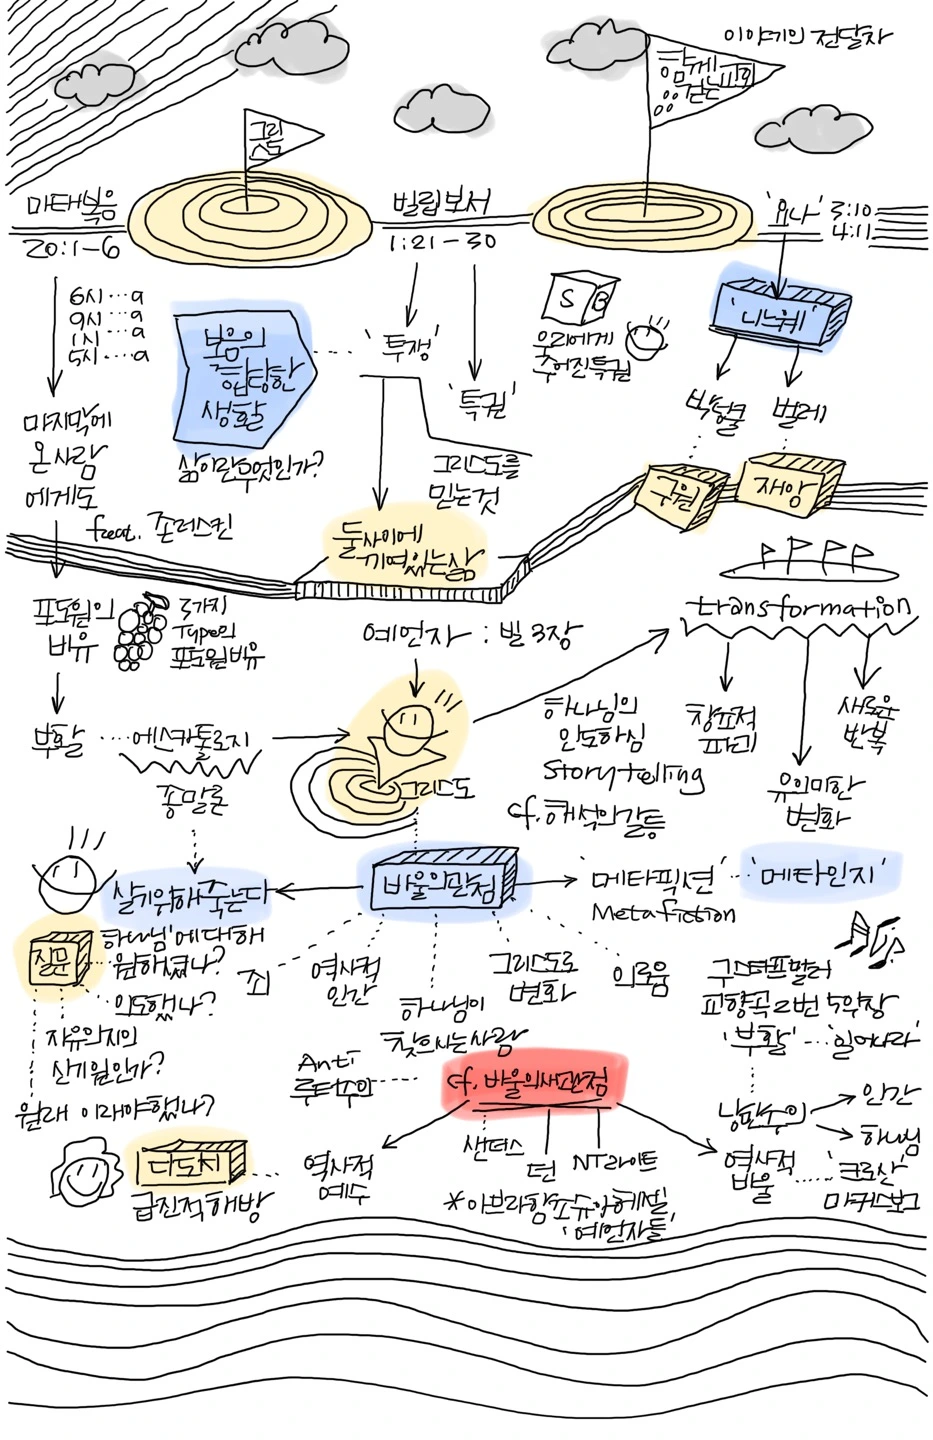 이야기의 전달자
함께
걷는
교회
그리
스도
마태복음
20:1-6
빌립보서
1:21-30
'요나' 3:10
4:11
6시…a
9시…a
1시…a
5시…a
복음의
합당한
생활
삶이란무엇인가?
'투쟁'
'특권'
S B
우리에게
주어진특권
'니느웨'
박넝쿨
벌레
구원
재앙
마지막에
온사람
에게도
feat. 존러스킨
그리스도를
믿는것
둘사이에
끼여있는삶
transformation
포도원의
비유
3가지
Type의
포도원비유
예언자 : 빌3장
부활 …에스카톨로지
종말론
그리스도
하나님의
인도하심
Storytelling
cf. 해석의갈등
창조적
파괴
유의미한
변화
새로운
반복
살기위해죽는다
바울의관점
'메타픽션'…'메타인지'
Metafiction
질문
하나님'에대해
원하셨나?
의도했나?
자유의지의
산기원인가?
원래 이래야했나?
죄
역사적
인간
하나님이
찾으시는사람
그리스도로
변화
의로움
구스타프말러
교향곡2번 5악장
'부활'…'일어나라'
Anti
루터주의
cf. 바울의새관점
샌더스
던
NT라이트
*아브라함조슈아헤셸
'예언자들'
역사적
예수
급진적해방
낭만주의
인간
하나님
역사적
바울
'크로산'
마커스보그